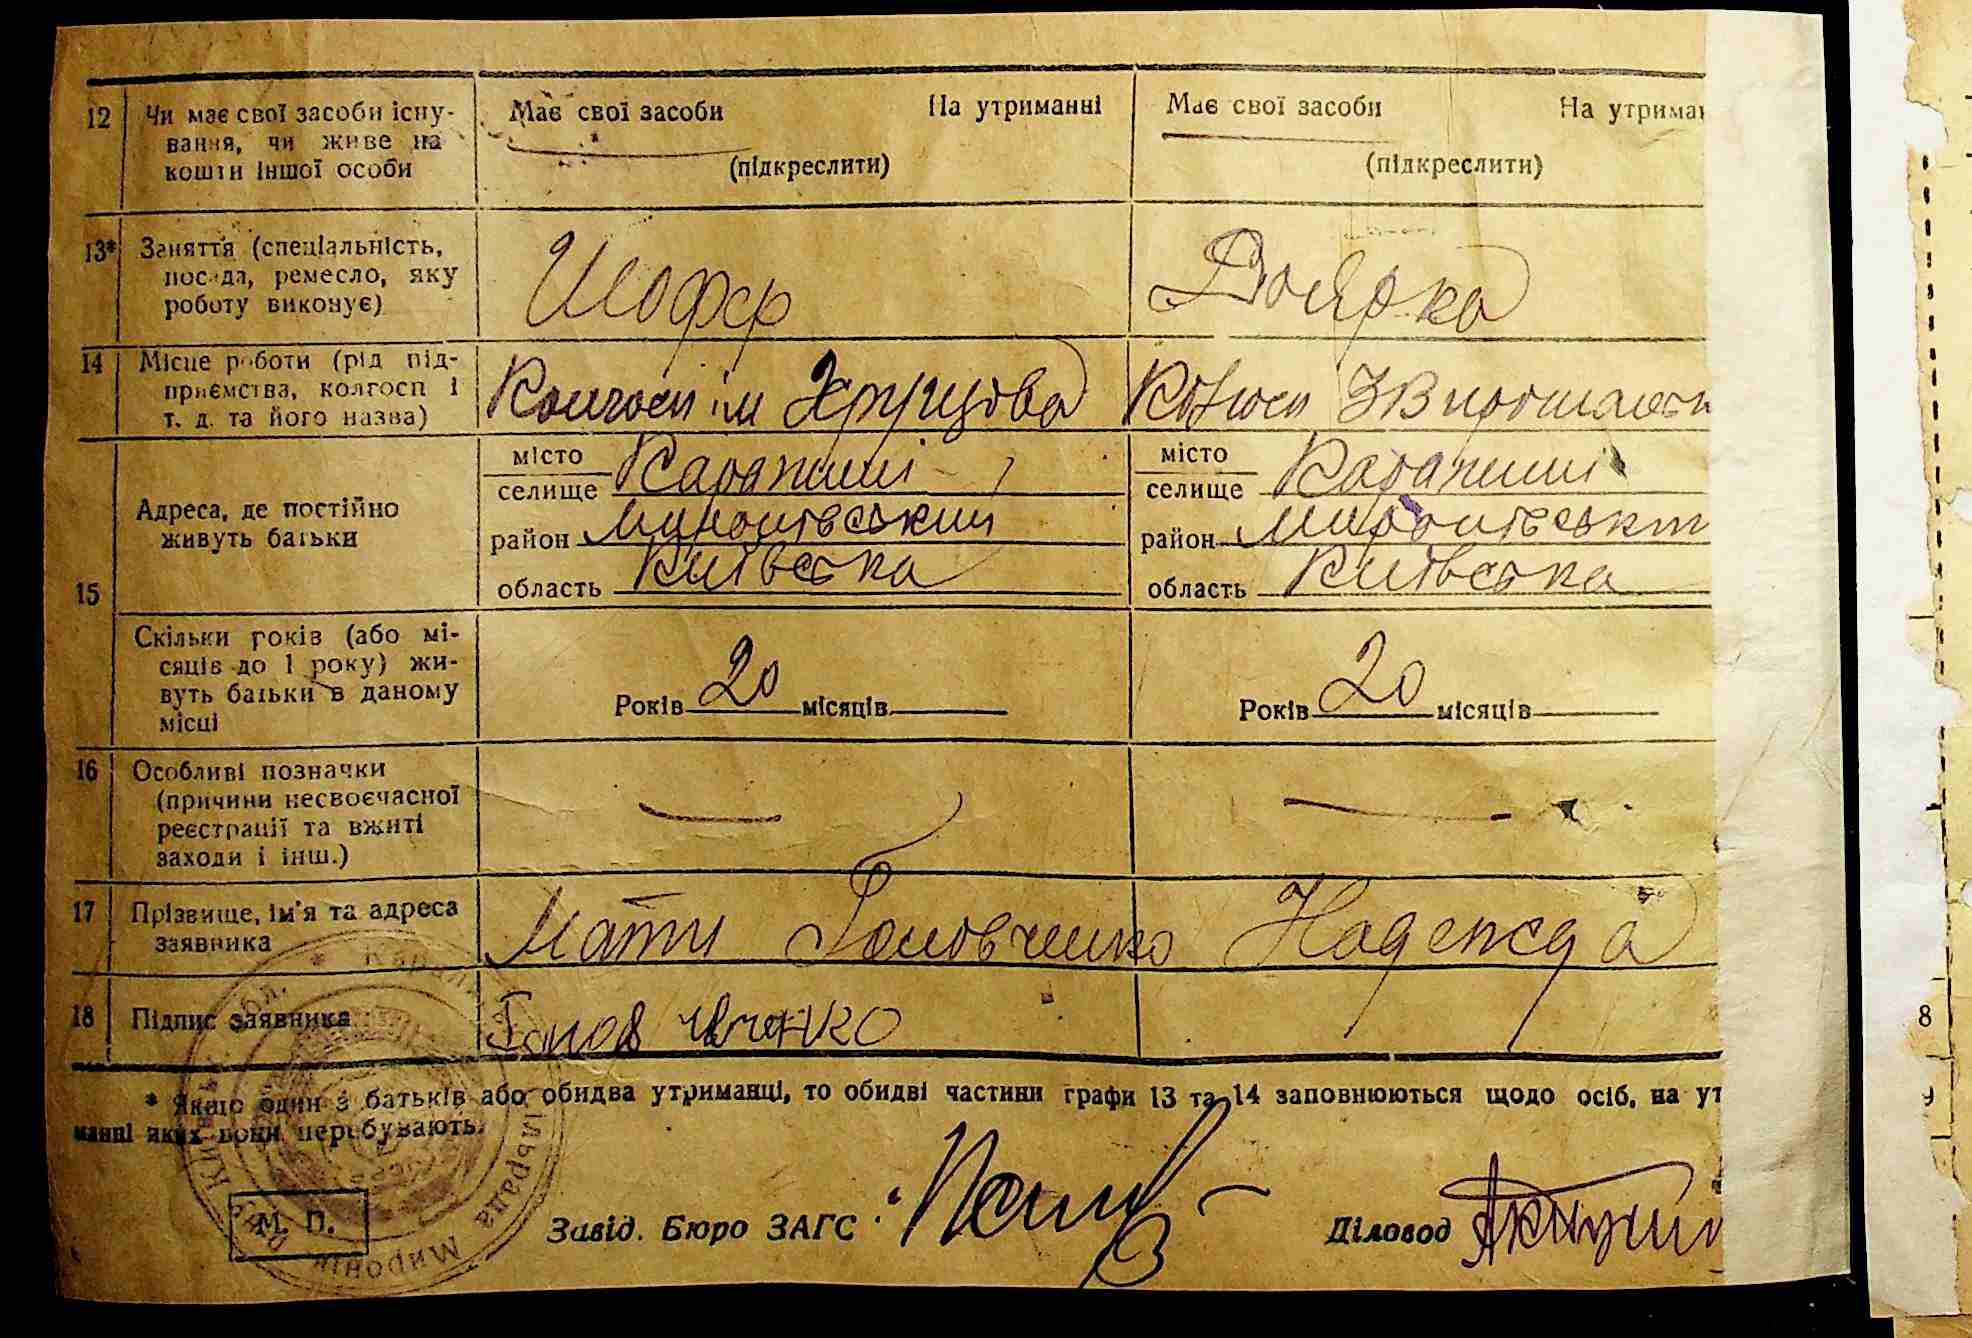 12 Чи має свої засоби існу- Має свої засоби На утриманні Має свої засоби На утриман
вання, чи живе на
кошти іншої особи (підкреслити) (підкреслити)
13* Заняття (спеціальність,
посада, ремесло, яку Шофер Доярка
роботу виконує)
14 Місце роботи (рід під-
приємства, колгосп і Колгосп ім Хрущова
т. д. та його назва)
15 Адреса, де постійно
живуть батьки
місто Карапиші місто Карапиші
селище селище
район Миронівський район Миронівськ
область Київська область Київська
Скільки років (або мі-
сяців до 1 року) жи-
вуть батьки в даному Років 20 місяців Років 20 місяців
місці
16 Особливі позначки
(причини несвоєчасної
реєстрації та вжиті
заходи і інш.)
17 Прізвище, ім'я та адреса Мати Головченко Надежда
заявника
18 Підпис заявника
* Якщо один з батьків або обидва утриманці, то обидві частини графи 13 та 14 заповнюються щодо осіб, на ут
манні яких вони перебувають.
М. П. Завід. Бюро ЗАГС Діловод
8
9